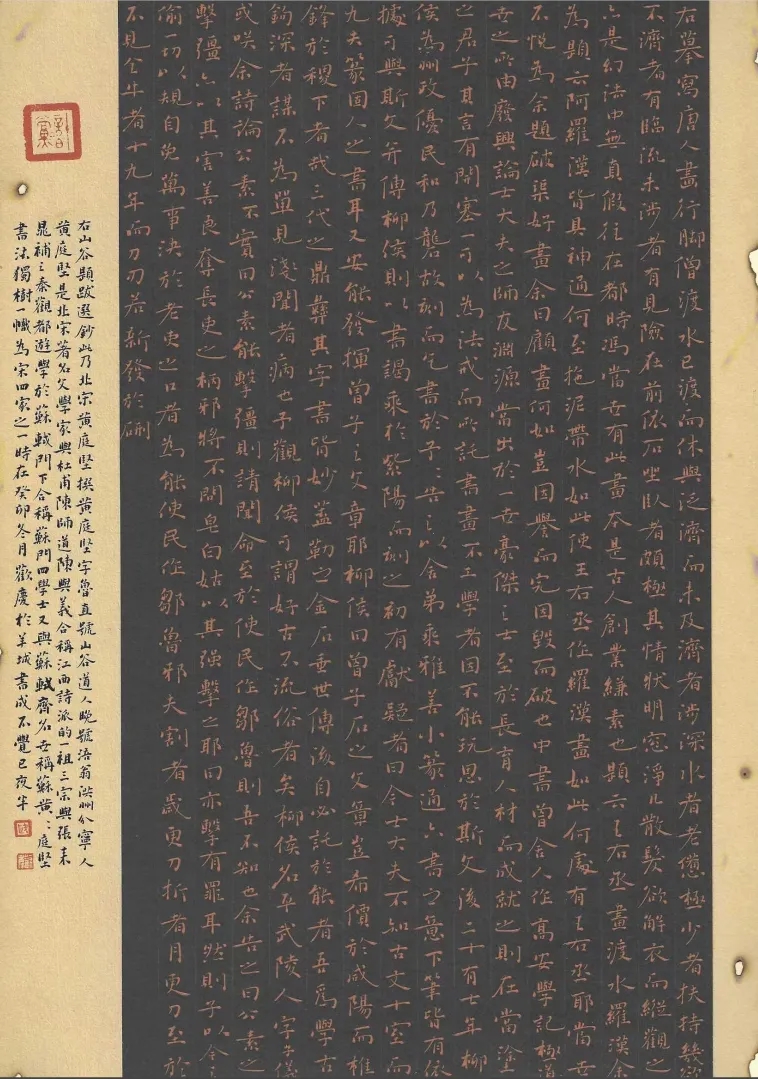 右摹寫唐人畫行腳僧渡水已渡而休與泛濟而未及濟者涉深水者老憊極少者扶持幾欲
不濟者有臨流未涉者有見險在前依石坐臥者頗極其情狀明窓淨几散髮欲解衣而縱觀之
亦是幻法中無真假往在都時馮當世有此畫本是古人創業縑素也題云王右丞畫渡水羅漢余
為題云阿羅漢皆具神通何至拖泥帶水如此使王右丞作羅漢畫如此何處有王右丞耶當世
不悅為余題破渠好畫余曰顧畫何如豈因譽而完因毀而破也中書曾舍人作高安學記極道
世之所由廢興論士大夫之師友淵源常出於一世豪傑之士至於長育人材而成就之則在當塗
之君子其言有開塞一可以為法戒而所託書畫不工學者因不能玩思於斯文後二十有七年柳
侯為州政優民和乃礱故刻而乞書於予予告之以舍弟乘雅善小篆通六書之意下筆皆有依
據可與斯文并傳柳侯則以書謁乘於紫陽而刻之初有獻疑者曰今士大夫不知古文十室而
九夫篆固人之書耳又安能發揮曾子之文章耶柳侯曰曾子石之文章豈希價於咸陽而椎
鋒於稷下者哉三代之鼎彝其字書皆妙蓋勒之金石垂世傳後自必託於能者吾爲學古
鉤深者謀不為單見淺聞者病也予觀柳侯可謂好古不流俗者矣柳侯名平武陵人字子儀
或咲余詩論公素不實曰公素能擊彊則請聞命至於使民作鄒魯則吾不知也余告之曰公素之
擊彊亦以其害善良奪長吏之柄邪將不問皂白姑以其强擊之耶曰亦擊有罪耳然則子以今之
偷一切以規自免萬事決於老吏之口者為能使民作鄒魯邪夫割者歲更刀折者月更刀至於
不見全牛者十九年而刀刃若新發於硎
右山谷題跋選鈔此乃北宋黄庭堅撰黄庭堅字魯直號山谷道人晚號涪翁洪州分寧人
黄庭堅是北宋著名文學家與杜甫陳師道陳與義合稱江西詩派的一祖三宗與張耒
晁補之秦觀都遊學於蘇軾門下合稱蘇門四學士又與蘇軾齊名世稱蘇黄黄庭堅
書法獨樹一幟為宋四家之一時在癸卯冬月歡慶於羊城書成不覺已夜半